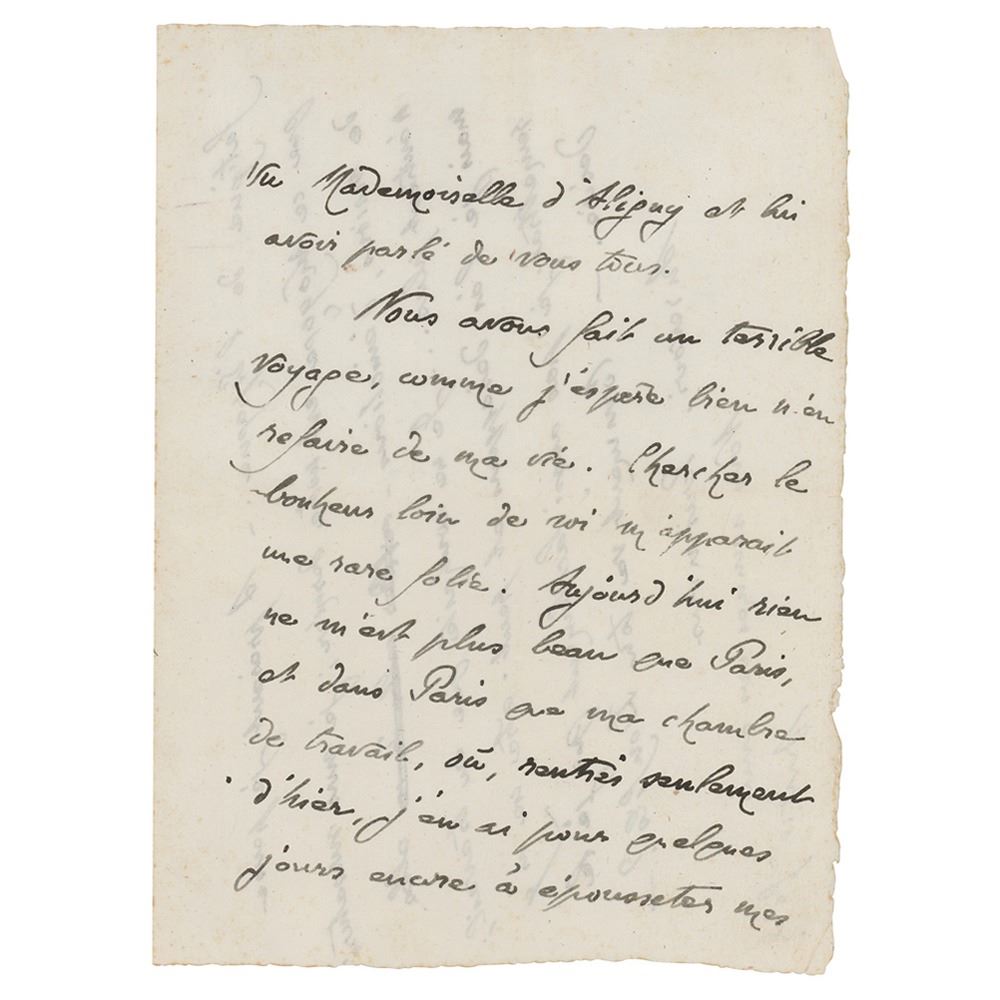 Vu Mademoiselle d'Aligny et lui
avoir parlé de vous tous.
Nous avons fait un terrible
voyage, comme j'espère bien n'en
refaire de ma vie. Chercher le
bonheur loin de soi m'apparait
une rare folie. Aujourd'hui rien
ne m'est plus beau que Paris,
et dans Paris que ma chambre
de travail, où, rentrés seulement
d'hier, j'en ai pour quelques
jours encore à épousseter mes